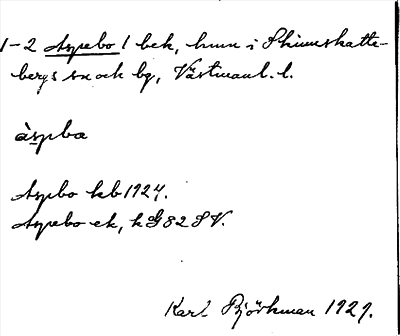 1-2 Aspebo 1 bek, hmn i Skinnskatte-
bergs sn och bg, Västmanl. l.
àspba
Aspbo kb 1924.
Aspebo ek, kG 82 SV.
Karl Björkman 1929.